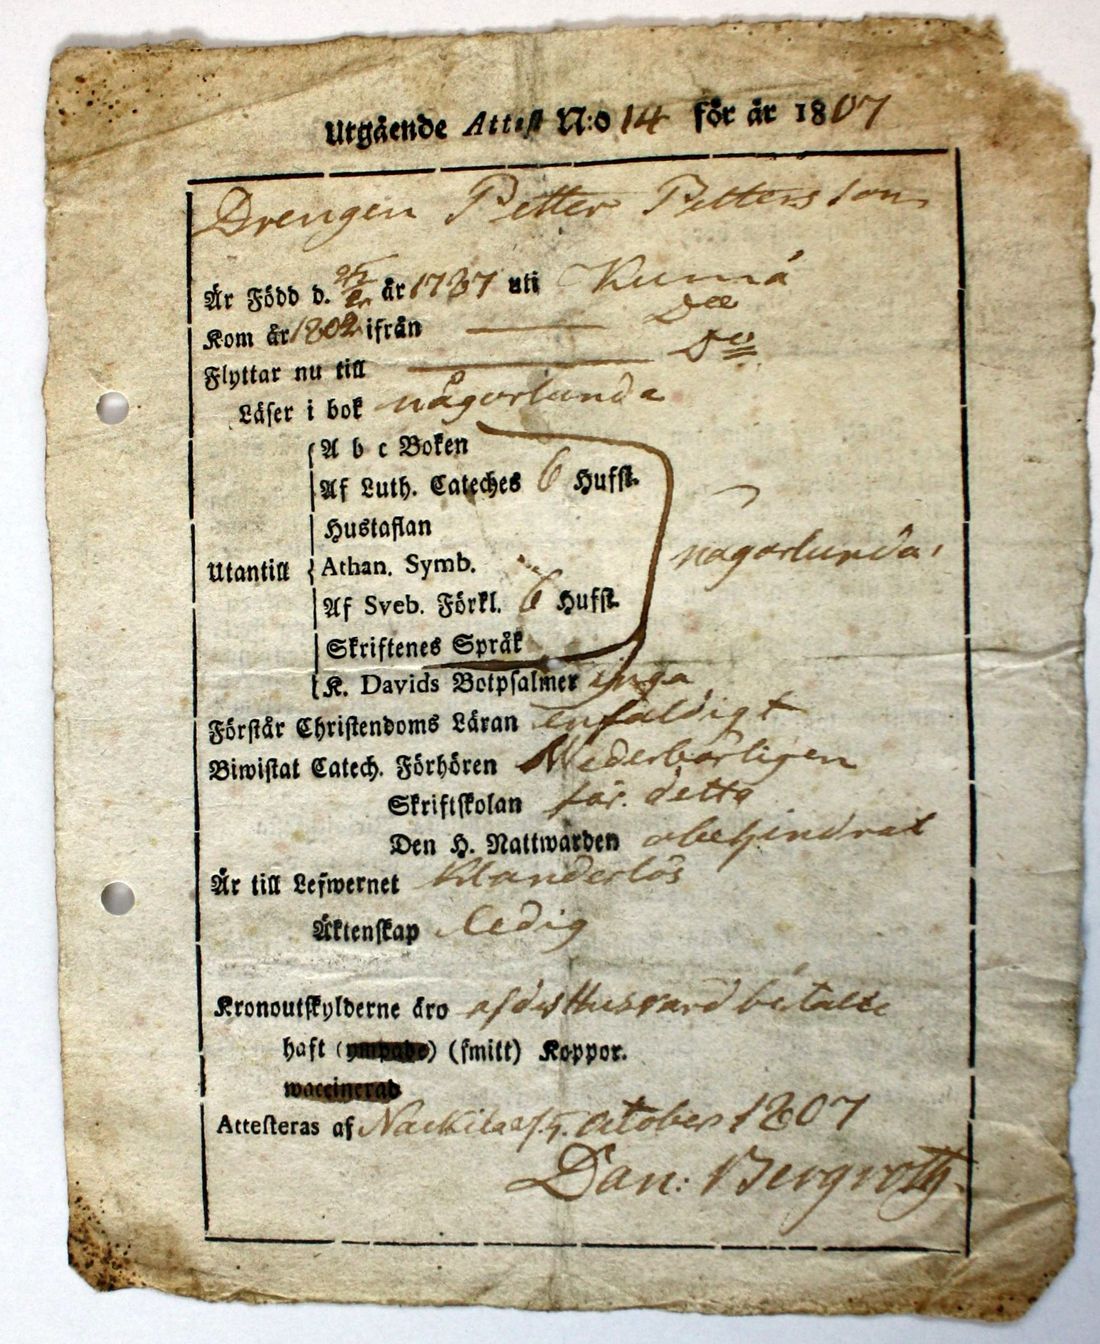 Utgående Attest N:o 14 för år 1807
Drengen Petter Pettersson
Är Född d. år 1787 uti Kumå
Kom år 1802 ifrån — Do
Flyttar nu till — Do
Läser i bok någorlunda
A b c Boken
Af Luth. Cateches 6 Hufst.
Hustaflan
Utantill Athan. Symb. någorlunda,
Af Sveb. Förkl. 6 Hufst.
Skriftenes Språk
K. Davids Botpsalmer inga
Förstår Christendoms Läran enfaldigt
Biwistat Catech. Förhören Wederbörligen
Skriftskolan för detta
Den H. Nattwarden obehindrat
Är till Lefwernet Klanderlös
Äktenskap Ledig
Kronoutskylderne äro af des Husbond betalte
haft (ympade) (smitt) Koppor.
waccinerad
Attesteras af October 1807
Dan: Bergroth